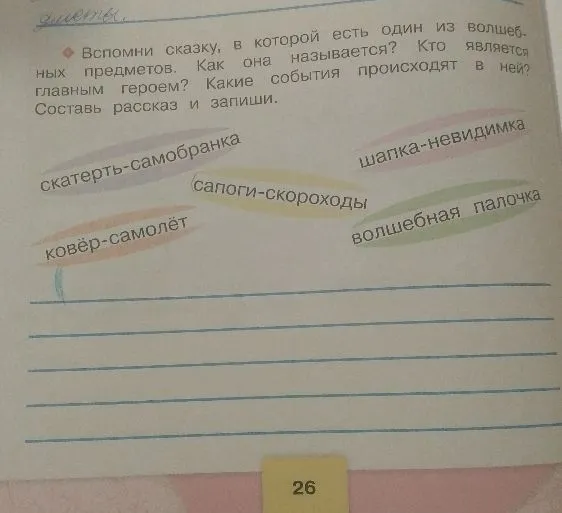 Вспомни сказку, в которой есть один из волшеб-
ных предметов. Как она называется? Кто является
главным героем? Какие события происходят в ней?
Составь рассказ и запиши.
скатерть-самобранка
шапка-невидимка
сапоги-скороходы
ковёр-самолёт
волшебная палочка
26